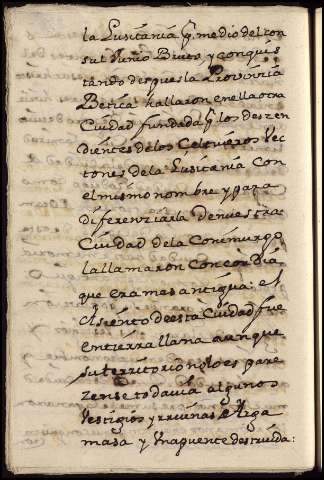 la Lusitania q̃. medio del con
sul Junio Bruto y conquis
tando despues la Provinzia
Betica hallaron en ella otra
Ciudad fundada q̃ los deszen
dientes de los Celtiveros Vec
tones de la Lusitania con
el mismo nombre y para
diferenziarla de nuestra
Ciudad de la Conimurgo
la llamaron Concordia
que era mas antigua: el
Asiento de esta Ciudad fue
en tierra llana aunque
su territorio no lo es pare
zense todavia algunos
Vestigios y rruinas de Arga
masa y Una puente destruida: